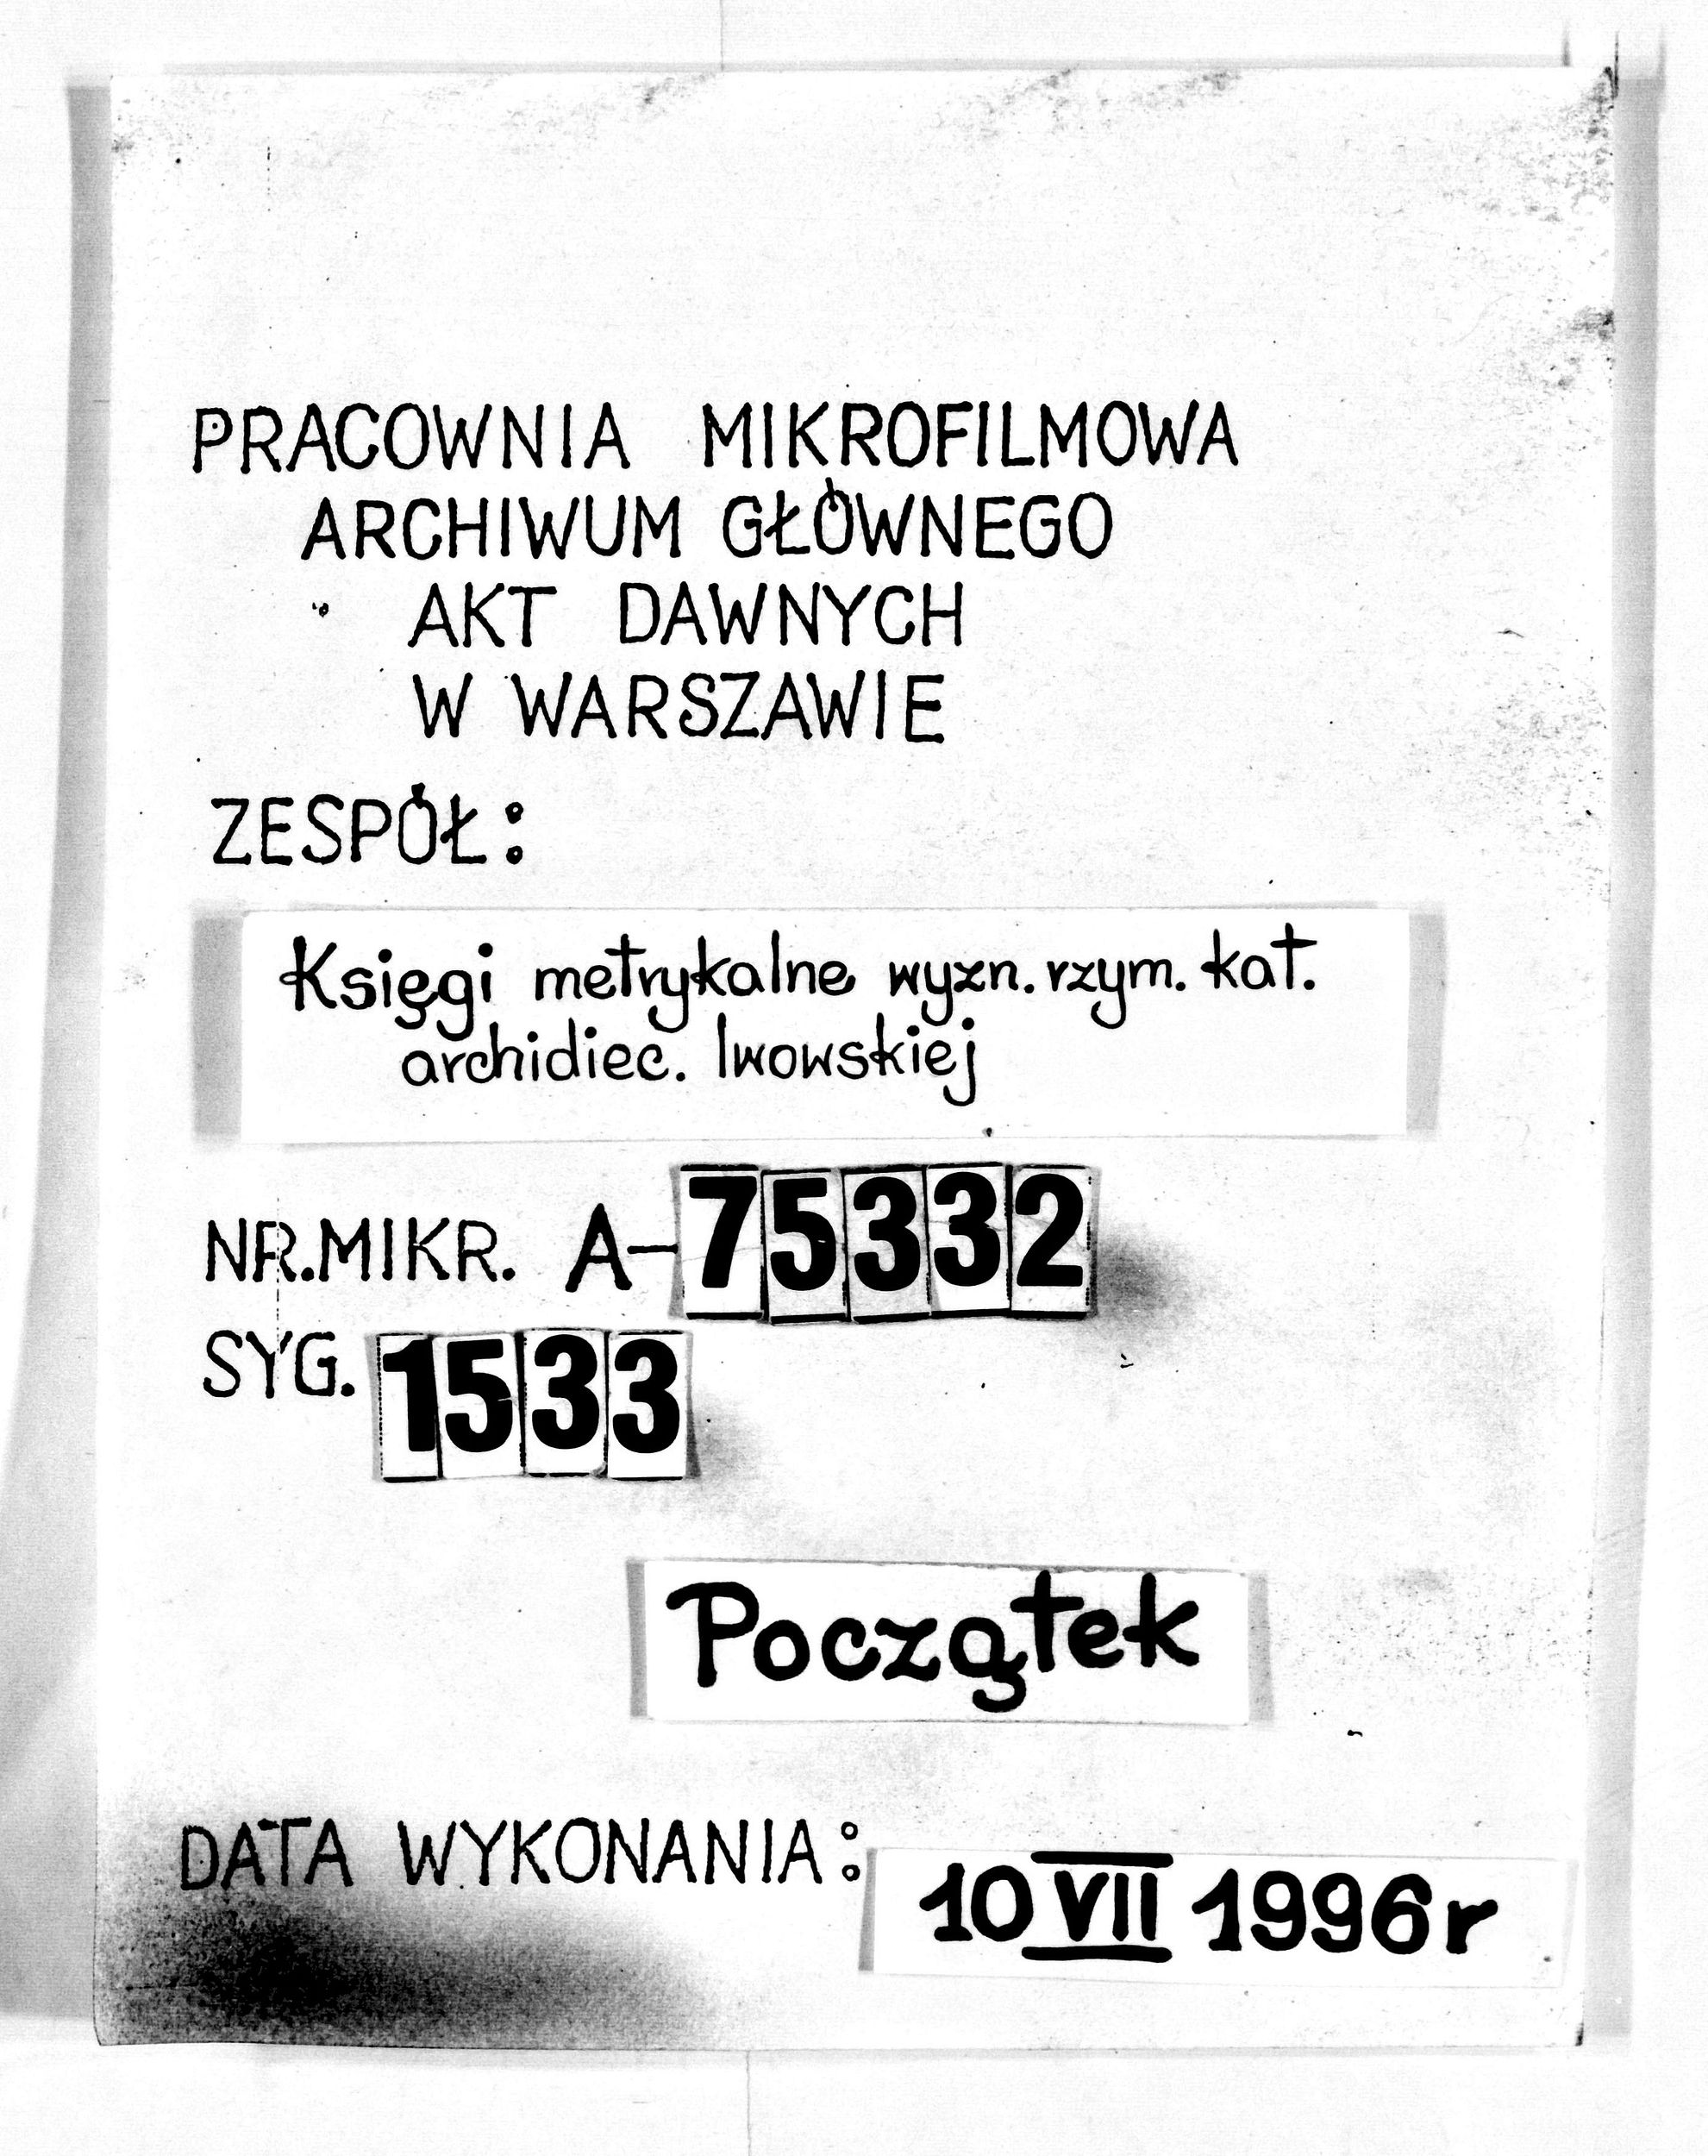 PRACOWNIA MIKROFILMOWA
ARCHIWUM GŁÓWNEGO
AKT DAWNYCH
W WARSZAWIE
ZESPÓŁ:
Księgi metrykalne wyzn. rzym. kat.
archidiec. lwowskiej
NR. MIKR. A-75332
SYG. 1533
Początek
DATA WYKONANIA: 10 VII 1996 r